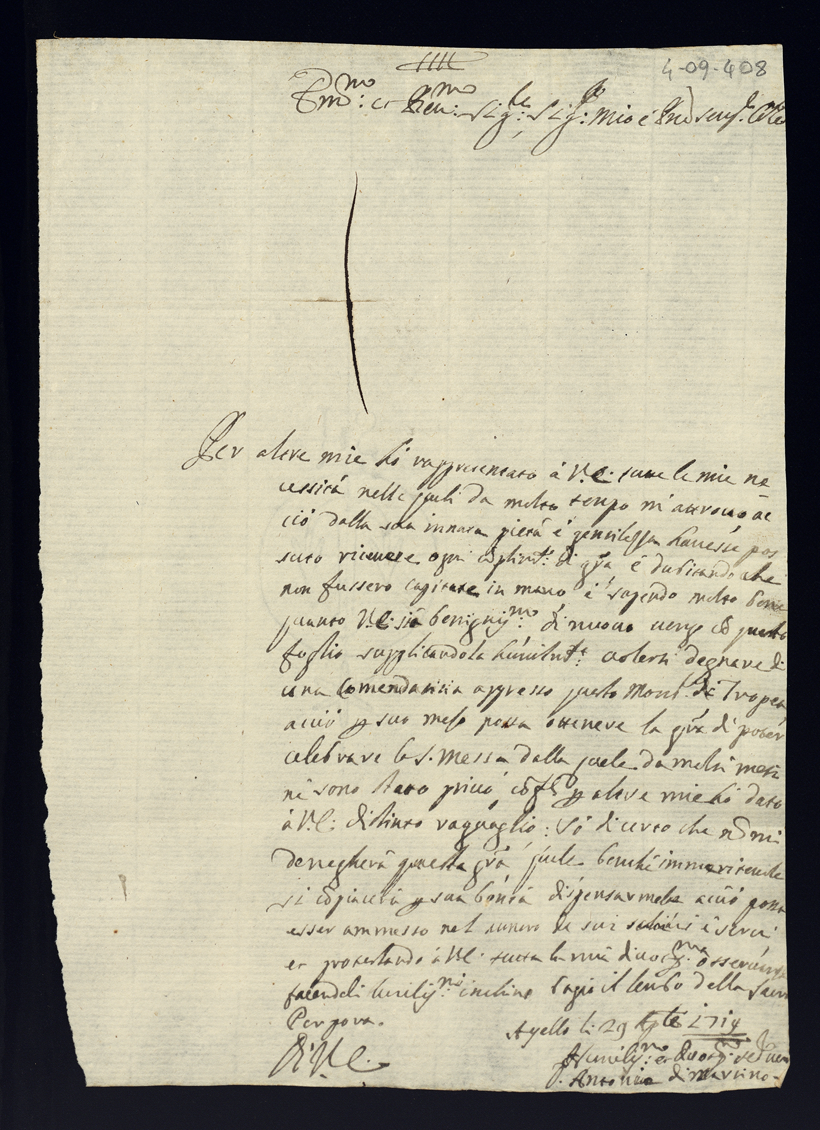 4-09-408
Em.mo: et Reu.mo: Sig.re, Sig.r: mio e
Per altre mie hò rappresentato à V.E: tutte le mie ne
cessità nelle quali da molto tempo m'attrouo ac
ciò dalla sua innata pietà e gentilezza hauesse pos
suto riceuere ogni di gr̃a e dubitando che
non fussero capitate in mano e sapendo molto bene
quanto V.E: sia benignis.mo di nuouo uengo cõ questo
foglio supplicandola humilm.te uolersi degnare di
una Comendatitia appresso questo Mons.r di Tropea
acciò p suo mezo possa ottenere la gr̃a di poter
celebrare la S. Messa dalla quale da molti mesi
ne sono stato priuo p altre mie hò dato
à V.E: distinto raguaglio: Sò di certo che nõ mi
denegherà questa gr̃a quale benche immeriteuole
si cõpiacerà p sua bontà dispensarmela acciò possa
esser ammesso nel numero de suoi e serui
et protestando à V.E. tutta la mia osseruanza
facendoli humilis.mi inchini bagio il lembo della Sacra
Porpora.
Ayello li 29 1714
Di V.E.
Humilis.mo: et Deuotis.mo
D. Antonio di Martino